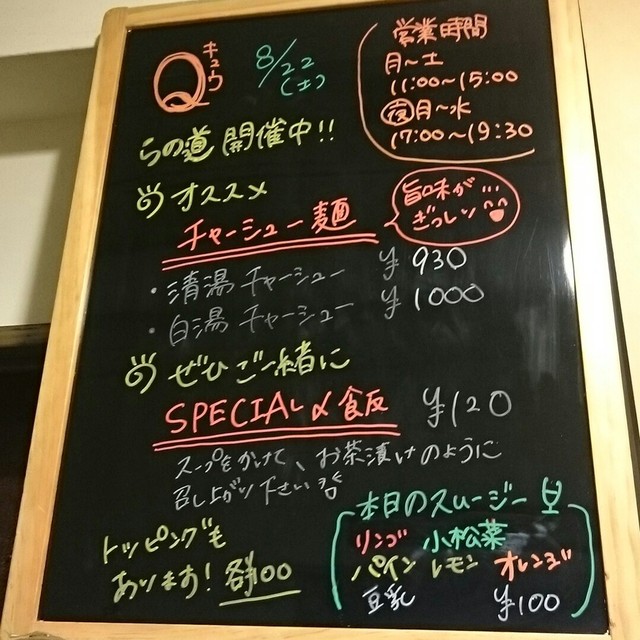 Q キュウ
8/22(土)
営業時間
月〜土
11:00〜15:00
夜 月〜水
17:00〜19:30
らの道 開催中!!
オススメ
チャーシュー麺
旨味が…
ぎっしり
・清湯チャーシュー ¥930
・白湯チャーシュー ¥1000
ぜひご一緒に
SPECIAL〆飯 ¥120
スープをかけて、お茶漬けのように
召し上がり下さい
トッピングも
あります! 各¥100
本日のスムージー
リンゴ 小松菜
パイン レモン オレンジ
豆乳 ¥100